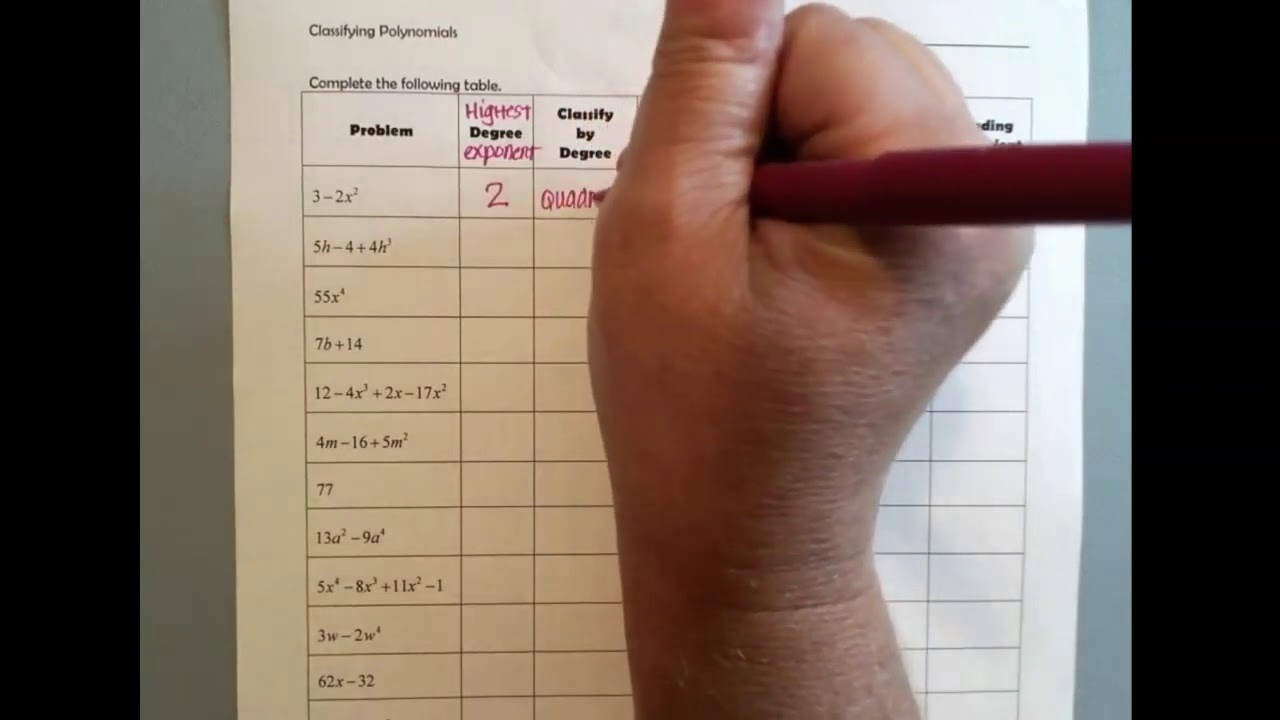 Classifying Polynomials
Complete the following table.
Problem
Highest
Degree
exponent
Classify
by
Degree
3 – 2x²
2
5h – 4 + 4h³
55x⁴
7b + 14
12 – 4x³ + 2x – 17x²
4m – 16 + 5m²
77
13a² – 9a⁴
5x⁴ – 8x³ + 11x² – 1
3w – 2w⁴
62x – 32